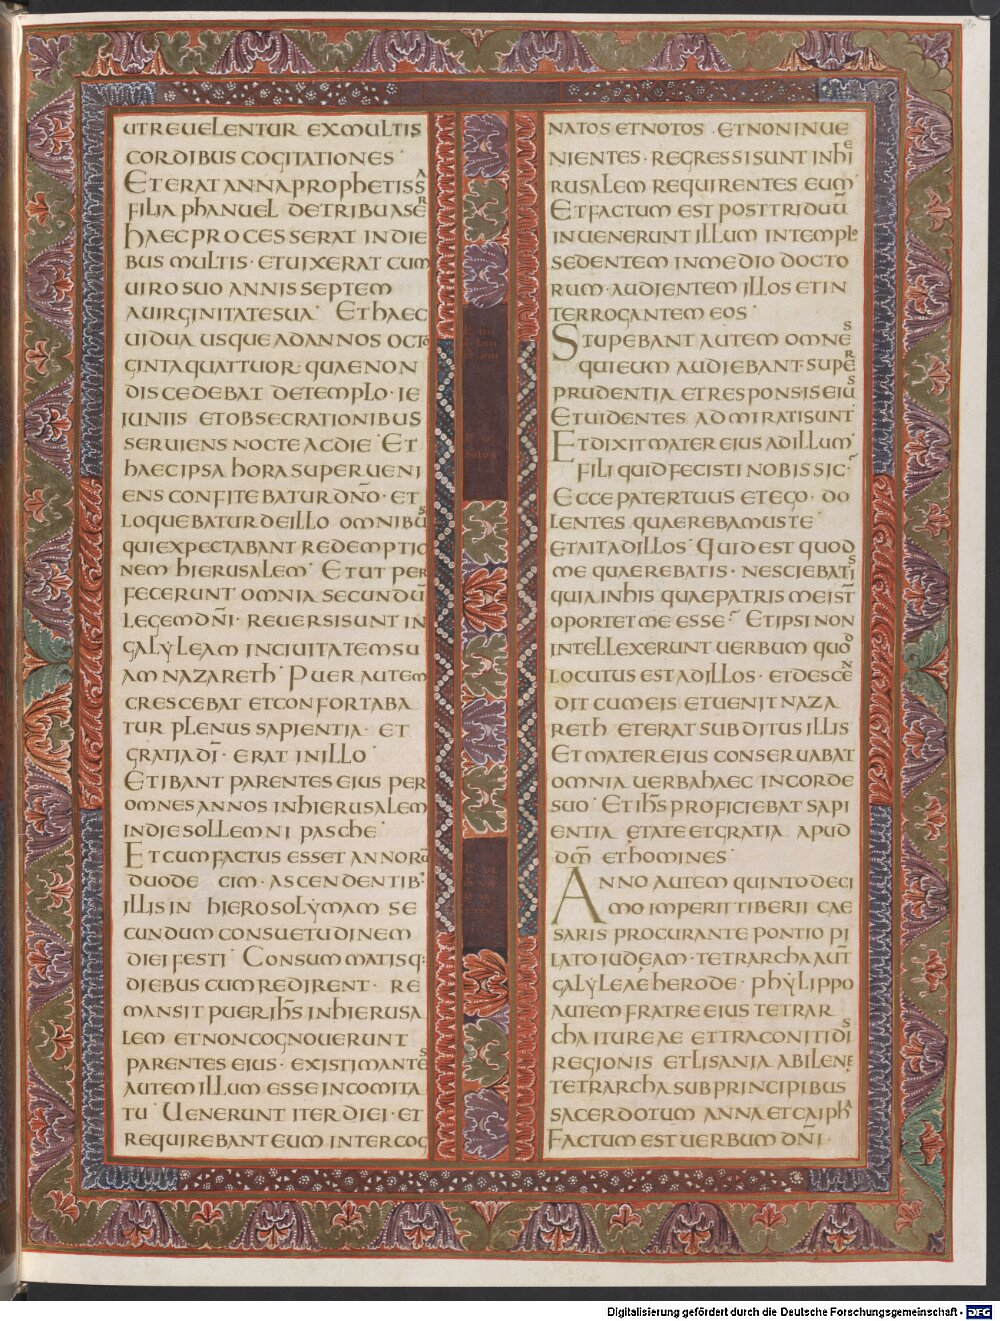 UTREUELENTUR EXMULTIS
CORDIBUS COGITATIONES
ETERAT ANNA PROPHETISSA
FILIA PHANUEL DETRIBU ASER
HAEC PROCESSERAT IN DIE
BUS MULTIS · ETUIXERAT CUM
UIRO SUO ANNIS SEPTEM
AUIRGINITATE SUA · ETHAEC
UIDUA USQUE AD ANNOS OCTO
GINTA QUATTUOR · QUAE NON
DISCEDEBAT DETEMPLO · IE
IUNIIS ET OBSECRATIONIBUS
SERUIENS NOCTE AC DIE · ET
HAEC IPSA HORA SUPERUENI
ENS CONFITEBATUR DN̄O · ET
LOQUEBATUR DEILLO OMNIBUS
QUI EXPECTABANT REDEMPTIO
NEM HIERUSALEM · ETUT PER
FECERUNT OMNIA SECUNDŪ
LEGEM DN̄I · REUERSI SUNT IN
GALYLEAM INCIUITATEM SU
AM NAZARETH · PUER AUTEM
CRESCEBAT ET CONFORTABA
TUR PLENUS SAPIENTIA · ET
GRATIA DĪ · ERAT IN ILLO
ETIBANT PARENTES EIUS PER
OMNES ANNOS INHIERUSALEM
INDIE SOLLEMNI PASCHE
ET CUM FACTUS ESSET ANNORŪ
DUODECIM · ASCENDENTIB:
ILLIS IN HIEROSOLYMAM SE
CUNDUM CONSUETUDINEM
DIEI FESTI · CONSUMMATISQ:
DIEBUS CUM REDIRENT · RE
MANSIT PUER IHS̄ INHIERUSA
LEM ET NON COGNOUERUNT
PARENTES EIUS · EXISTIMANTES
AUTEM ILLUM ESSE INCOMITA
TU · UENERUNT ITER DIEI · ET
REQUIREBANT EUM INTER COG
NATOS ET NOTOS · ET NON INUE
NIENTES · REGRESSI SUNT INHIE
RUSALEM REQUIRENTES EUM
ET FACTUM EST POST TRIDUŪ
INUENERUNT ILLUM INTEMPLO
SEDENTEM IN MEDIO DOCTO
RUM · AUDIENTEM ILLOS ET IN
TERROGANTEM EOS
STUPEBANT AUTEM OMNES
QUI EUM AUDIEBANT · SUPER
PRUDENTIA ET RESPONSIS EIUS
ET UIDENTES ADMIRATI SUNT
ET DIXIT MATER EIUS AD ILLUM
FILI QUID FECISTI NOBIS SIC
ECCE PATER TUUS ET EGO · DO
LENTES QUAEREBAMUS TE
ET AIT AD ILLOS · QUID EST QUOD
ME QUAEREBATIS · NESCIEBATIS
QUIA IN HIS QUAE PATRIS MEI ST̄
OPORTET ME ESSE · ET IPSI NON
INTELLEXERUNT UERBUM QUOD
LOCUTUS EST AD ILLOS · ET DESCEN
DIT CUM EIS ET UENIT NAZA
RETH ET ERAT SUBDITUS ILLIS
ET MATER EIUS CONSERUABAT
OMNIA UERBA HAEC IN CORDE
SUO · ET IHS̄ PROFICIEBAT SAPI
ENTIA ETATE ET GRATIA APUD
DM̄ ET HOMINES
ANNO AUTEM QUINTO DECI
MO IMPERII TIBERII CAE
SARIS PROCURANTE PONTIO PI
LATO IUDEAM · TETRARCHA AUT̄
GALYLEAE HERODE · PHYLIPPO
AUTEM FRATRE EIUS TETRAR
CHA ITUREAE ET TRACONITIDIS
REGIONIS ET LISANIA ABILENE
TETRARCHA SUB PRINCIPIBUS
SACERDOTUM ANNA ET CAIPHA
FACTUM EST UERBUM DN̄I ·
Digitalisierung gefördert durch die Deutsche Forschungsgemeinschaft - DFG